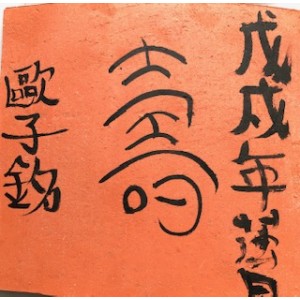 戊戌年月
壽
歐子銘